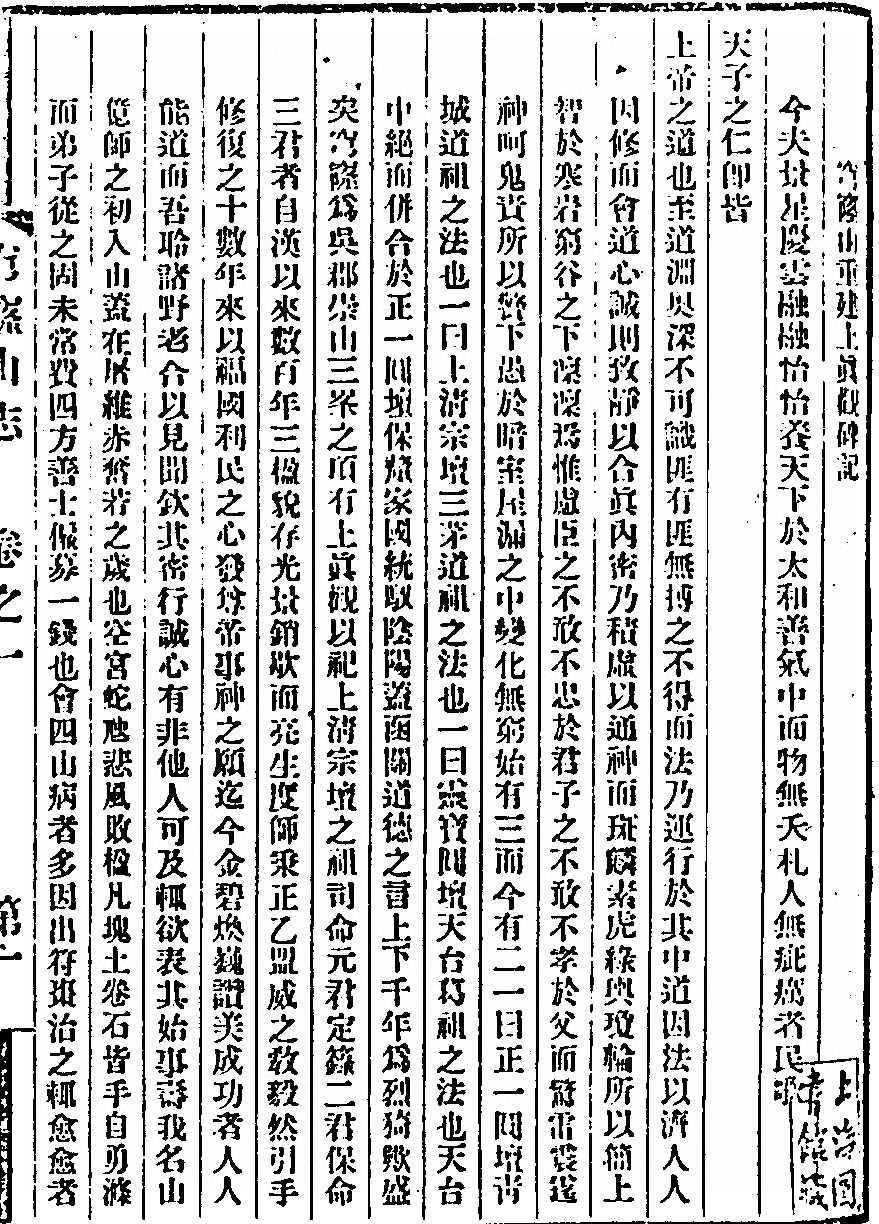 穹窿山重建上眞觀碑記
今夫景星慶雲融融怡怡養天下於太和善氣中而物無夭札人無疵癘者民
天子之仁卽皆
上帝之道也至道淵奧深不可識匪有匪無搏之不得而法乃運行於其中道因法以濟人人
因修而會道心誠則致靜以合眞內密乃積虛以通神而斑麟素虎綠輿瓊輪所以簡上
智於寒岩窮谷之下凜凜焉惟慮臣之不敢不忠於君子之不敢不孝於父而驚雷震霆
神呵鬼責所以警下愚於暗室屋漏之中變化無窮始有三而今有二一曰正一閭壇靑
城道祖之法也一曰上淸宗壇三茅道祖之法也一曰靈寶閭壇天台葛祖之法也天台
中絕而併合於正一閭壇保鎭家國統馭陰陽蓋函關道德之言上下千年爲烈猗歟盛
矣穹窿爲吳郡崇山三峯之頂有上眞觀以祀上淸宗壇之祖司命元君定籙二君保命
三君者自漢以來數百年三楹貌存光景銷歇而亮生度師秉正乙盟威之敎毅然引手
修復之十數年來以福國利民之心發尊帝事神之願迄今金碧煥巍讚美成功者人人
能道而吾聆諸野老合以見聞欽其密行誠心有非他人可及輒欲表其始事壽我名山
億師之初入山蓋在屠維赤奮若之歲也空宮蛇虺悲風敗楹凡塊土卷石皆手自勇滌
而弟子從之固未常費四方善士傭募一錢也會四山病者多因出符棗治之輒愈愈者
穹窿山志
卷之一
第一
上海圖
書館藏